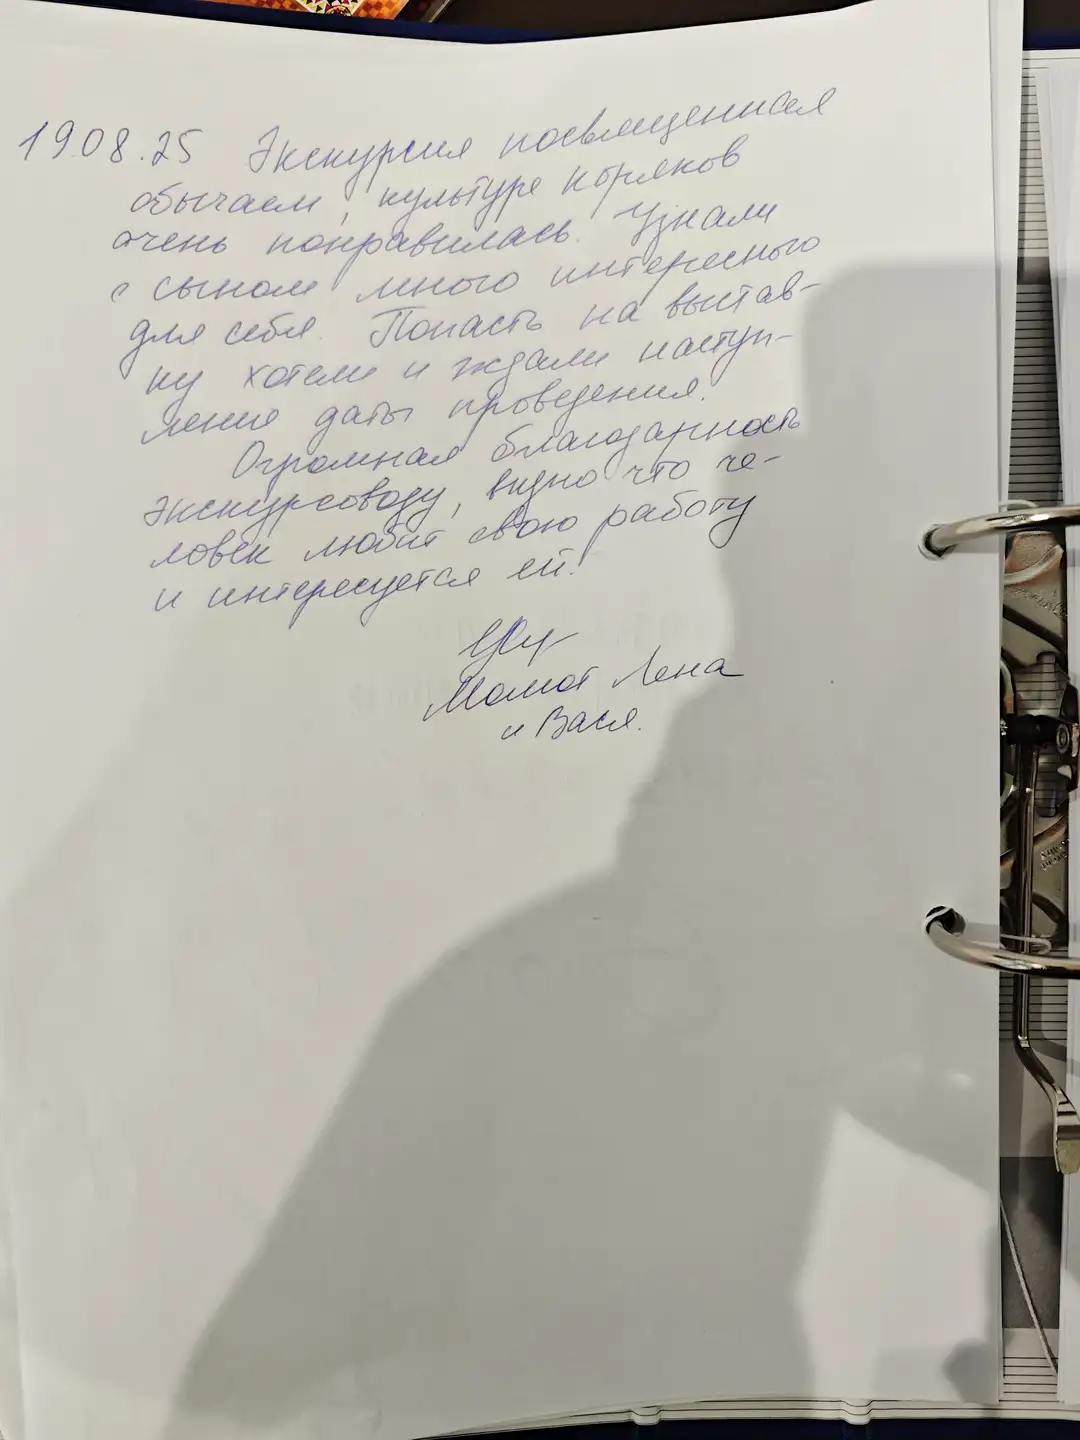 19.08.25 Экскурсия посвященная
обычаем, культуре коряков
очень понравилась. Узнали
с сыном много интересного
для себя. Попасть на выстав-
ку хотели и ждали наступ-
ление даты проведения.
Огромная благодарность
экскурсоводу, видно что че-
ловек любит свою работу
и интересуется ей!
Момот Лена
и Вася.